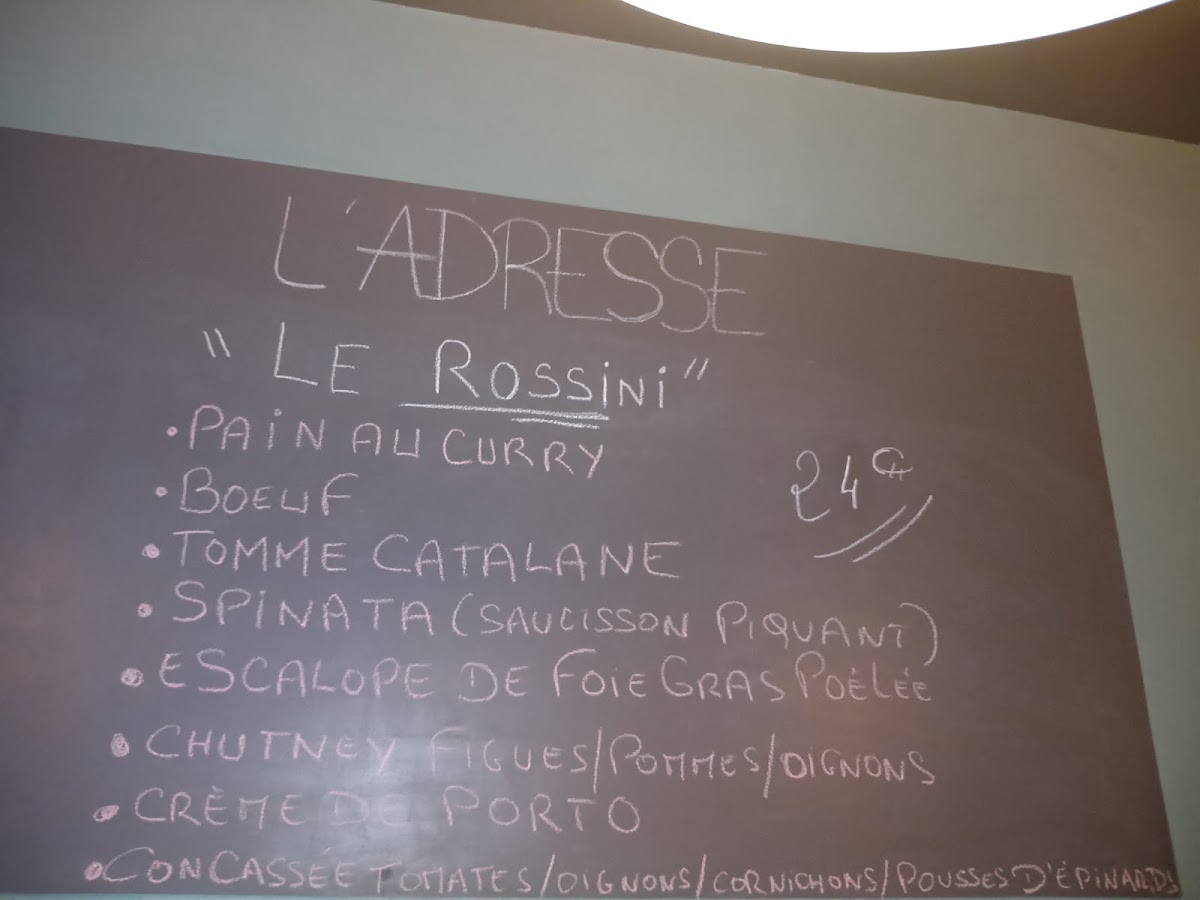 L'ADRESSE
"LE ROSSINI"
• PAIN AU CURRY
• BOEUF
24€
• TOMME CATALANE
• SPINATA (SAUCISSON PIQUANT)
• ESCALOPE DE FOIE GRAS POÈLÉE
• CHUTNEY FIGUES/POMMES/OIGNONS
• CRÈME DE PORTO
• CONCASSÉE TOMATES/OIGNONS/CORNICHONS/POUSSES D'ÉPINARDS